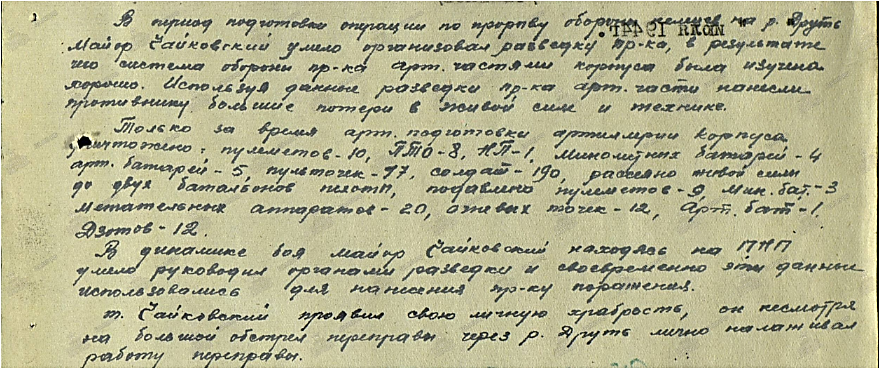 В период подготовки операции по прорыву обороны немцев на р. Друть
Майор Чайковский умело организовал разведку пр-ка, в результате
чего система обороны пр-ка арт. частями корпуса была изучена
хорошо. Используя данные разведки пр-ка арт. части нанесли
противнику большие потери в живой силе и технике.
Только за время арт. подготовки артиллерии корпуса
уничтожено: пулеметов-10, ПТО-8, НП-1, Минометных батарей-4
арт. батарей-5, пульточек-77, солдат-190, рассеяно живой силы
до двух батальонов пехоты, подавлено пулеметов-9 мин. бат.-3
Метательных аппаратов-20, огневых точек-12, Арт. бат-1.
Дзотов-12.
В динамике боя майор Чайковский находясь на ПНП
умело руководил органами разведки и своевременно эти данные
использовались для нанесения пр-ку поражения.
т. Чайковский проявил свою личную храбрость, он несмотря
на большой обстрел переправы через р. Друть лично налаживал
работу переправы.
июля 1944г.